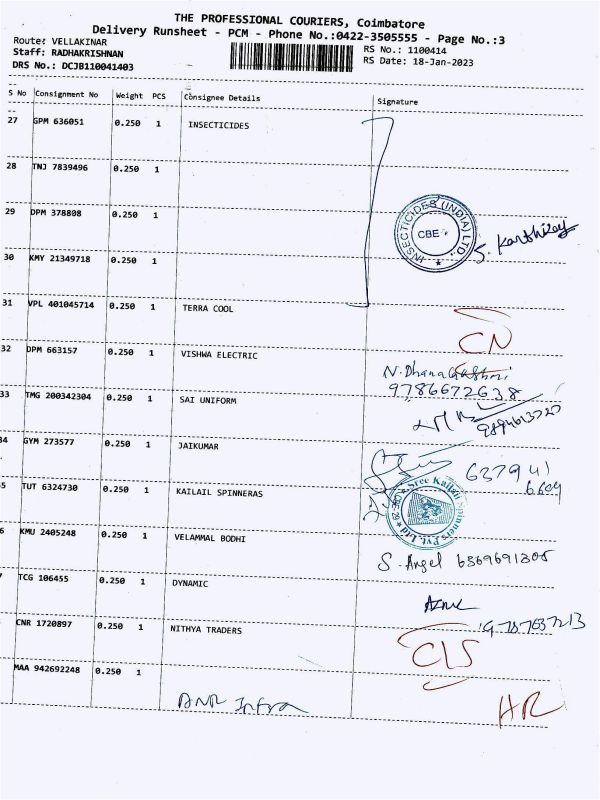 THE PROFESSIONAL COURIERS, Coimbatore
Delivery Runsheet - PCM - Phone No.:0422-3505555 - Page No.:3
Route: VELLAKINAR
RS No.: 1100414
Staff: RADHAKRISHNAN
RS Date: 18-Jan-2023
DRS No.: DCJB110041403
S No Consignment No Weight PCS Consignee Details Signature
27 GPM 636051 0.250 1 INSECTICIDES
28 TNJ 7839496 0.250 1
29 DPM 378808 0.250 1
INSECTICIDES (INDIA) LTD.
CBE
S. Karthikey
30 KMY 21349718 0.250 1
31 VPL 401045714 0.250 1 TERRA COOL
CN
32 DPM 663157 0.250 1 VISHWA ELECTRIC
9786672638
33 TMG 200342304 0.250 1 SAI UNIFORM
34 GYM 273577 0.250 1 JAIKUMAR
637941
6604
5 TUT 6324730 0.250 1 KAILAIL SPINNERAS
Sree Kailail Spinners Pvt. Ltd
6 KMU 2405248 0.250 1 VELAMMAL BODHI
S. Angel 6369691305
7 TCG 106455 0.250 1 DYNAMIC
9787637213
CNR 1720897 0.250 1 NITHYA TRADERS
CLS
MAA 942692248 0.250 1
ANR Infra
HR